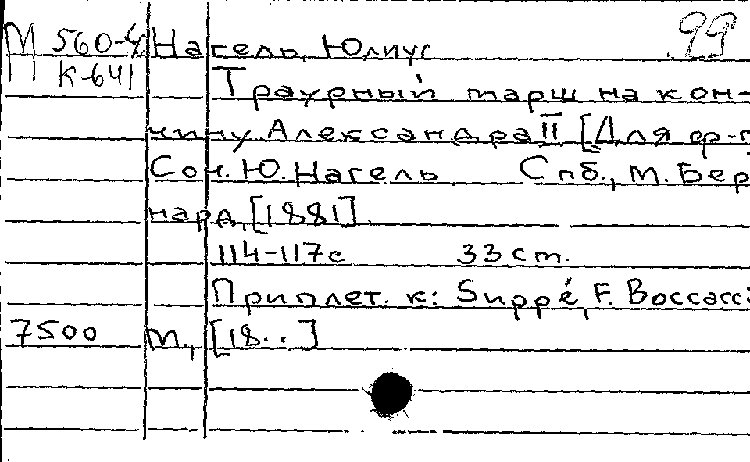 М 560-4 Нагель, Юлиус 99
К-641 Траурный марш на кон-
чину Александра II [Для ф-п
Соч. Ю. Нагель Спб., М. Бер
нард, [1881].
114-117с 33 см.
Приплет. к: Suppé, F. Boccacci
7500 м., [18..]